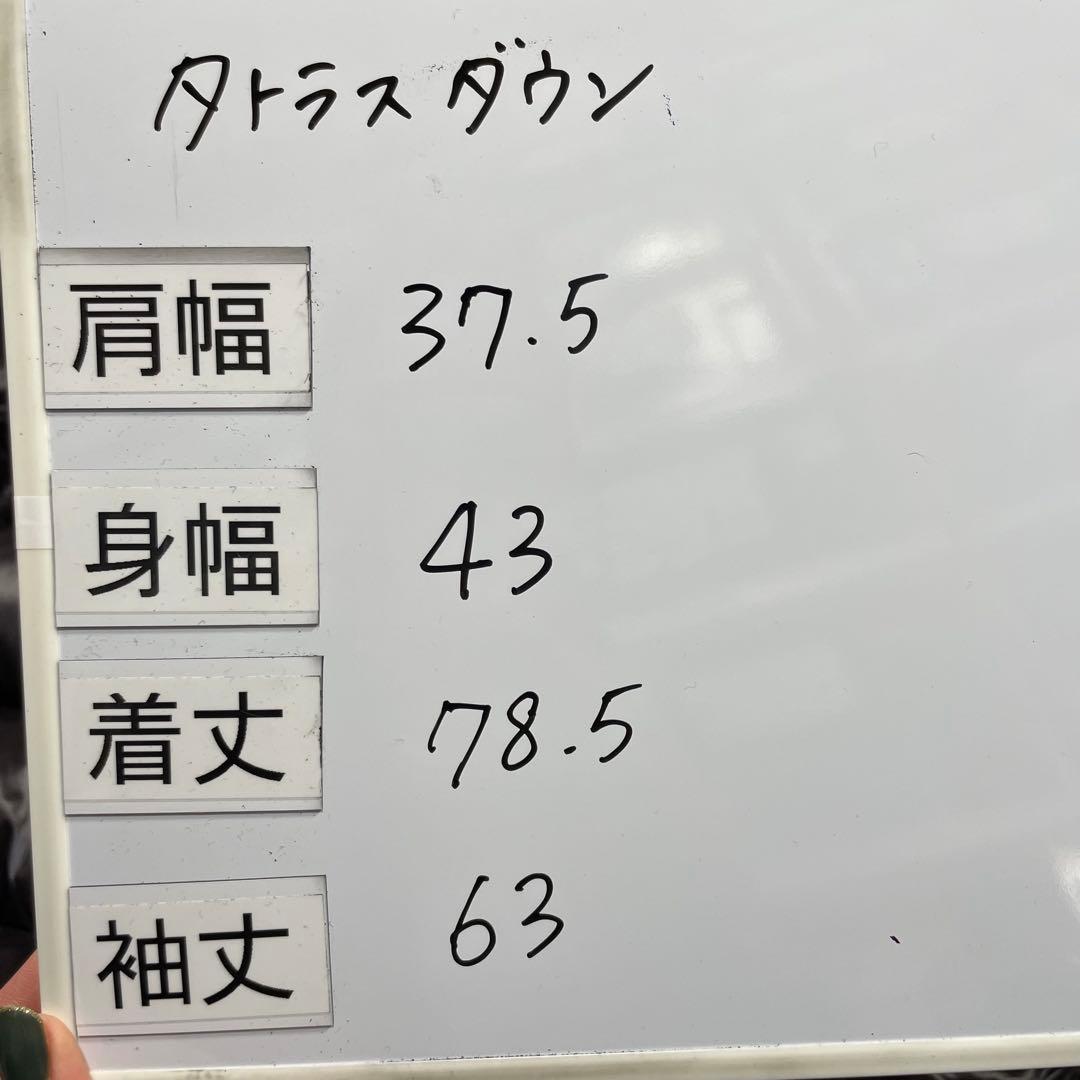 タトラスダウン
肩幅 37.5
身幅 43
着丈 78.5
袖丈 63